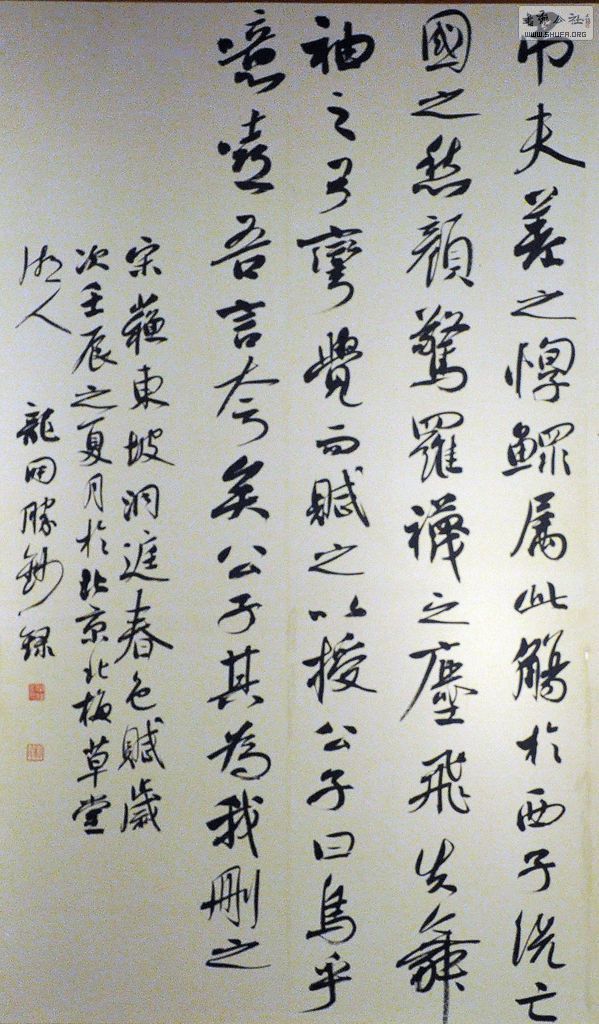 吊夫差之惸鰥属此觴於西子洗亡
國之愁顏驚羅襪之塵飛失舞
袖之弓彎覺而賦之以授公子曰烏乎
噫嘻吾言夸矣公子其為我刪之
宋蘇東坡洞庭春色賦歲
次壬辰之夏月於北京北梅草堂
湘人 龍開勝鈔錄
WWW.SHUFA.ORG